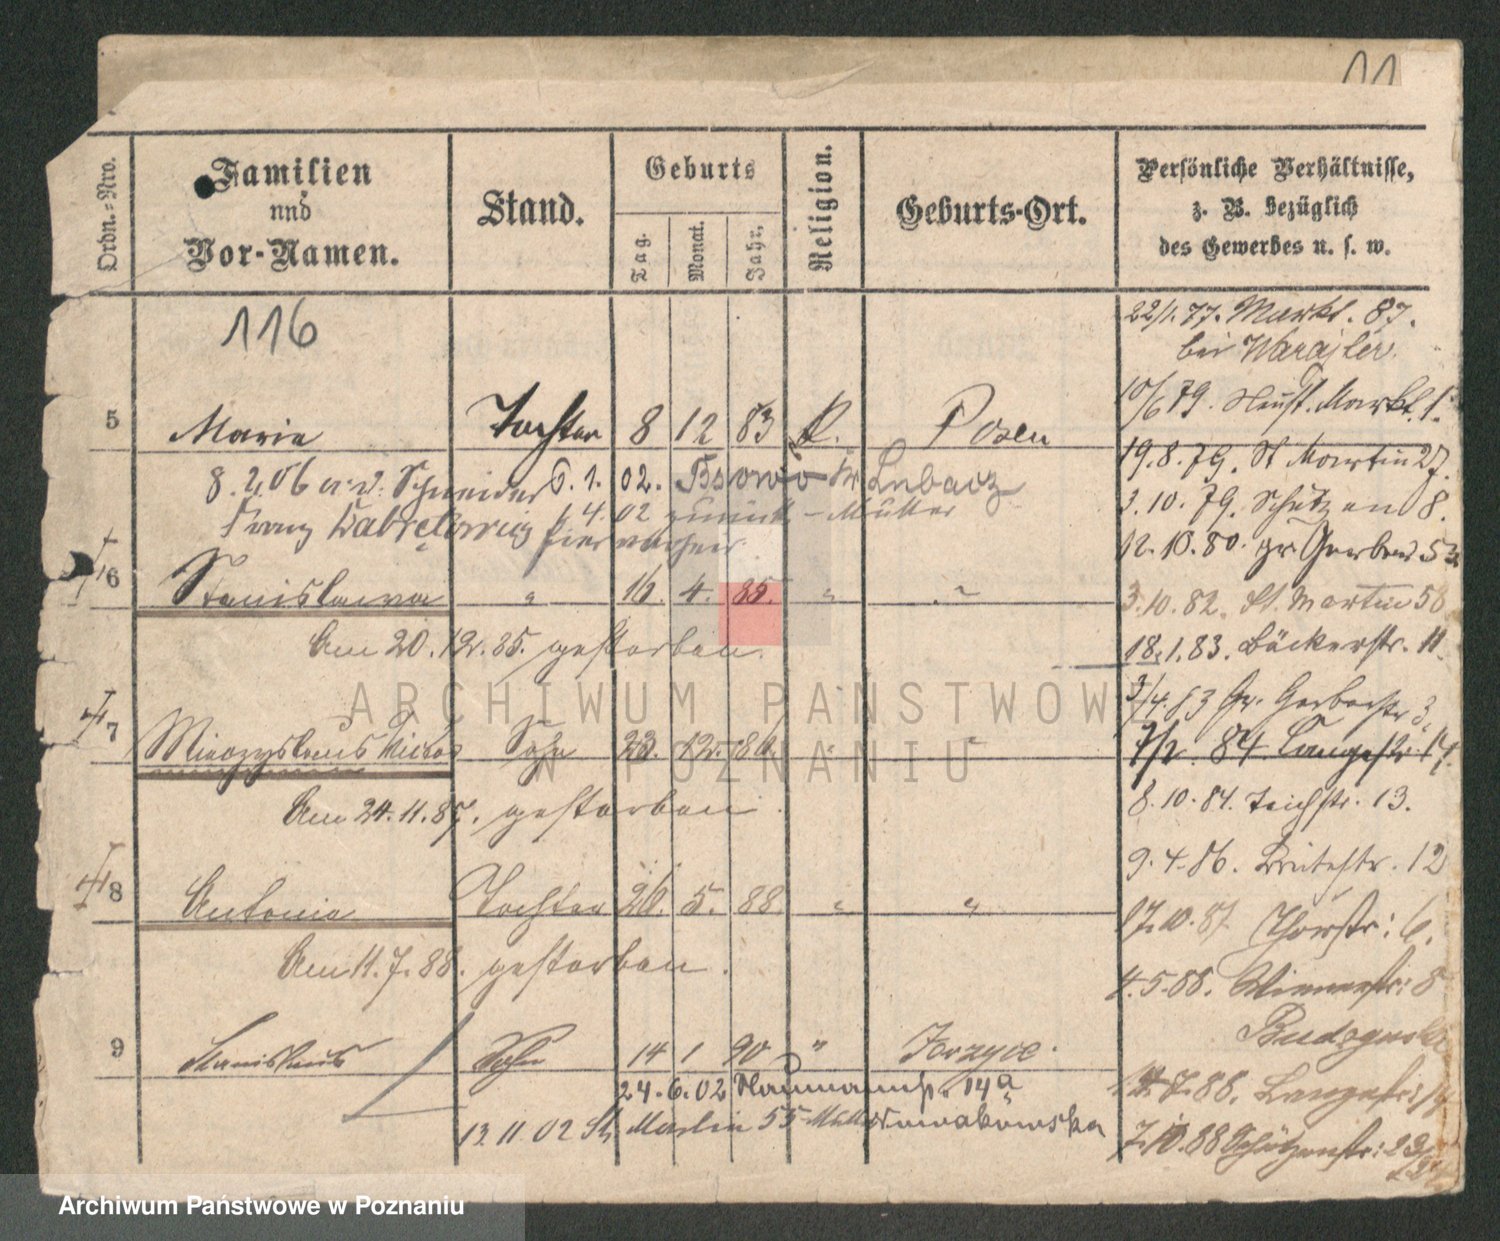 11
Ordn.-Nro.
Familien
und
Vor-Namen.
Stand.
Geburts
Tag.
Monat.
Jahr.
Religion.
Geburts-Ort.
Persönliche Verhältnisse,
z. B. bezüglich
des Gewerbes u. s. w.
116
5 Maria Tochter 8 12 83 K. Posen
8. 2. 06 Schneider 6. 1. 02.
Franz 4. 02 zurück - Mutter
6 Stanislawa " 16. 4. 85. " "
Am 20. 12. 85. gestorben.
7 Mieczyslaus Sohn 23. 12. 86. " "
Am 24. 11. 87. gestorben.
8 Antonia Tochter 26. 5. 88. " "
Am 11. 7. 88. gestorben.
9 Stanislaus Sohn 14 1 90 " Jerzyce.
24. 6. 02 Naumannstr. 14a
13. 11. 02 St. Martin 55 Nowakowska
22/1. 77. Markt. 87.
bei
10/6 79. Neust. Markt. 1.
19. 8. 79. St Martin 27.
3. 10. 79. Schützen 8.
12. 10. 80. gr. Gerber 53
3. 10. 82. St. Martin 58
18. 1. 83. Bäckerstr. 11.
3/4. 83 Gr. Gerberstr 3.
84. Langestr. 14.
8. 10. 84. Teichstr. 13.
9. 4. 86. Breitestr. 12
17. 10. 87. Thorstr: 6.
4. 5. 88. Wienerstr: 8
7. 88. Langestr: 14
7. 10. 88 Schützenstr: 23/24
ARCHIWUM PAŃSTWOWE
W POZNANIU
Archiwum Państwowe w Poznaniu